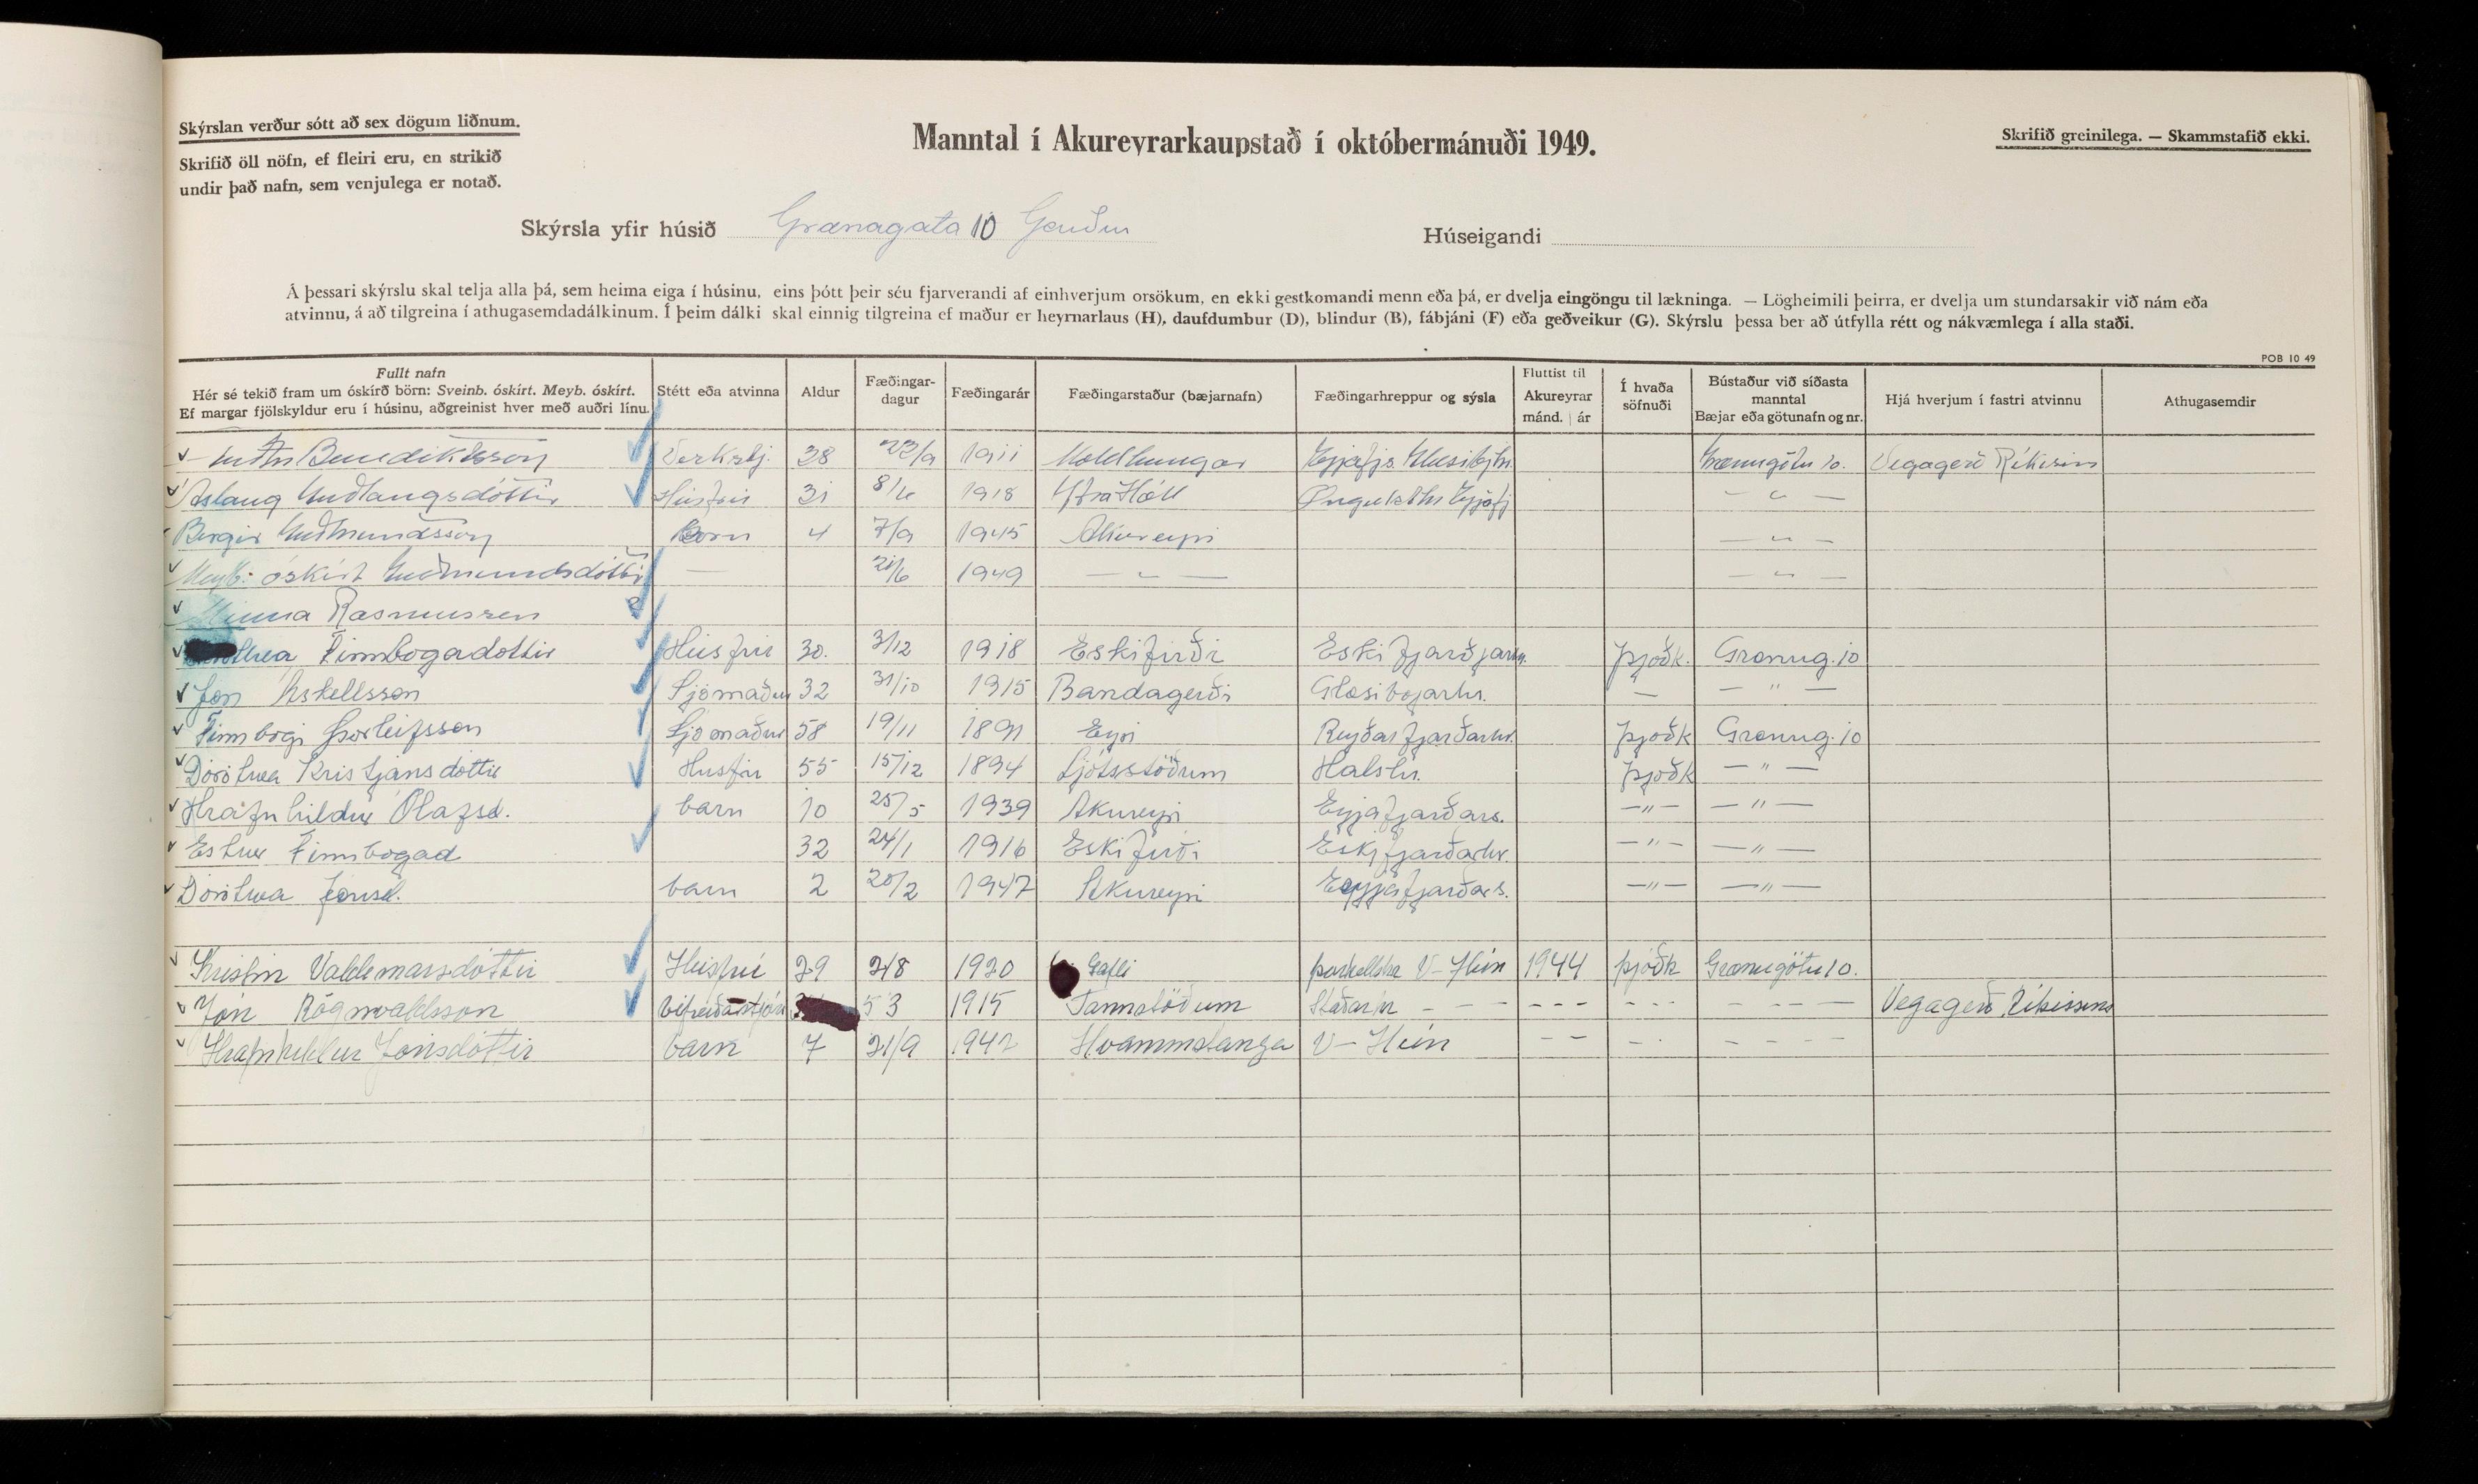 Skýrslan verður sótt að sex dögum liðnum.
Skrifið öll nöfn, ef fleiri eru, en strikið
undir það nafn, sem venjulega er notað.
Manntal í Akureyrarkaupstað í októbermánuði 1949.
Skrifið greinilega. — Skammstafið ekki.
Skýrsla yfir húsið Grænagata 10
Húseigandi
Á þessari skýrslu skal telja alla þá, sem heima eiga í húsinu, eins þótt þeir séu fjarverandi af einhverjum orsökum, en ekki gestkomandi menn eða þá, er dvelja eingöngu til lækninga. — Lögheimili þeirra, er dvelja um stundarsakir við nám eða
atvinnu, á að tilgreina í athugasemdadálkinum. Í þeim dálki skal einnig tilgreina ef maður er heyrnarlaus (H), daufdumbur (D), blindur (B), fábjáni (F) eða geðveikur (G). Skýrslu þessa ber að útfylla rétt og nákvæmlega í alla staði.
POB 10 49
Fullt nafn
Hér sé tekið fram um óskírð börn: Sveinb. óskírt. Meyb. óskírt.
Ef margar fjölskyldur eru í húsinu, aðgreinist hver með auðri línu.
Stétt eða atvinna
Aldur
Fæðingar-
dagur
Fæðingarár
Fæðingarstaður (bæjarnafn)
Fæðingarhreppur og sýsla
Fluttist til
Akureyrar
mánd. | ár
Í hvaða
söfnuði
Bústaður við síðasta
manntal
Bæjar eða götunafn og nr.
Hjá hverjum í fastri atvinnu
Athugasemdir
Benediktsson Verkstj. 38 22/9 1911 Moldhaugar Eyjafjs. Glæsibjhr. Grænugötu 10. Vegagerð Ríkisins
Áslaug Guðlaugsdóttir Húsfrú 31 1918 Ytra Hóll Öngulsthr Eyjafj — " —
Birgir Guðmundsson Barn 4 7/9 1945 Akureyri — " —
Meyb. óskírt Guðmundsdóttir — 21/6 1949 — " — — " —
Minna Rasmussen
Finnbogadóttir Húsfrú 30. 3/12 1918 Eskifirði Eskifjarðarhr. Þjóðk. Grænug. 10
Jón Áskellsson Sjómaður 32 31/10 1915 Bandagerði Glæsibæjarhr. — — " —
Finnbogi Þorleifsson Sjómaður 58 19/11 1891 Eyri Reyðarfjarðarhr. Þjóðk Grænug. 10
Dórothea Kristjánsdóttir Húsfrú 55 15/12 1894 Ljótsstöðum Hálshr. Þjóðk — " —
Hrafnhildur Ólafsd. barn 10 25/5 1939 Akureyri Eyjafjarðars. — " — — " —
Esther Finnbogad 32 24/1 1916 Eskifirði Eskifjarðarhr. — " — — " —
Dórothea Jónsd. barn 2 20/2 1947 Akureyri Eyjafjarðars. — " — — " —
Kristín Valdemarsdóttir Húsfrú 29 2/8 1920 Gafli Þorkellshr V-Hún 1944 þjóðk Grænugötu 10.
Jón Rögnvaldsson bifreiðarstjóri 5 3 1915 Tannstöðum Staðarhr - — — - - - - - - - - - — Vegagerð Ríkisins
Hrafnhildur Jónsdóttir barn 7 21/9 1942 Hvammstanga V-Hún - - - - - - - -